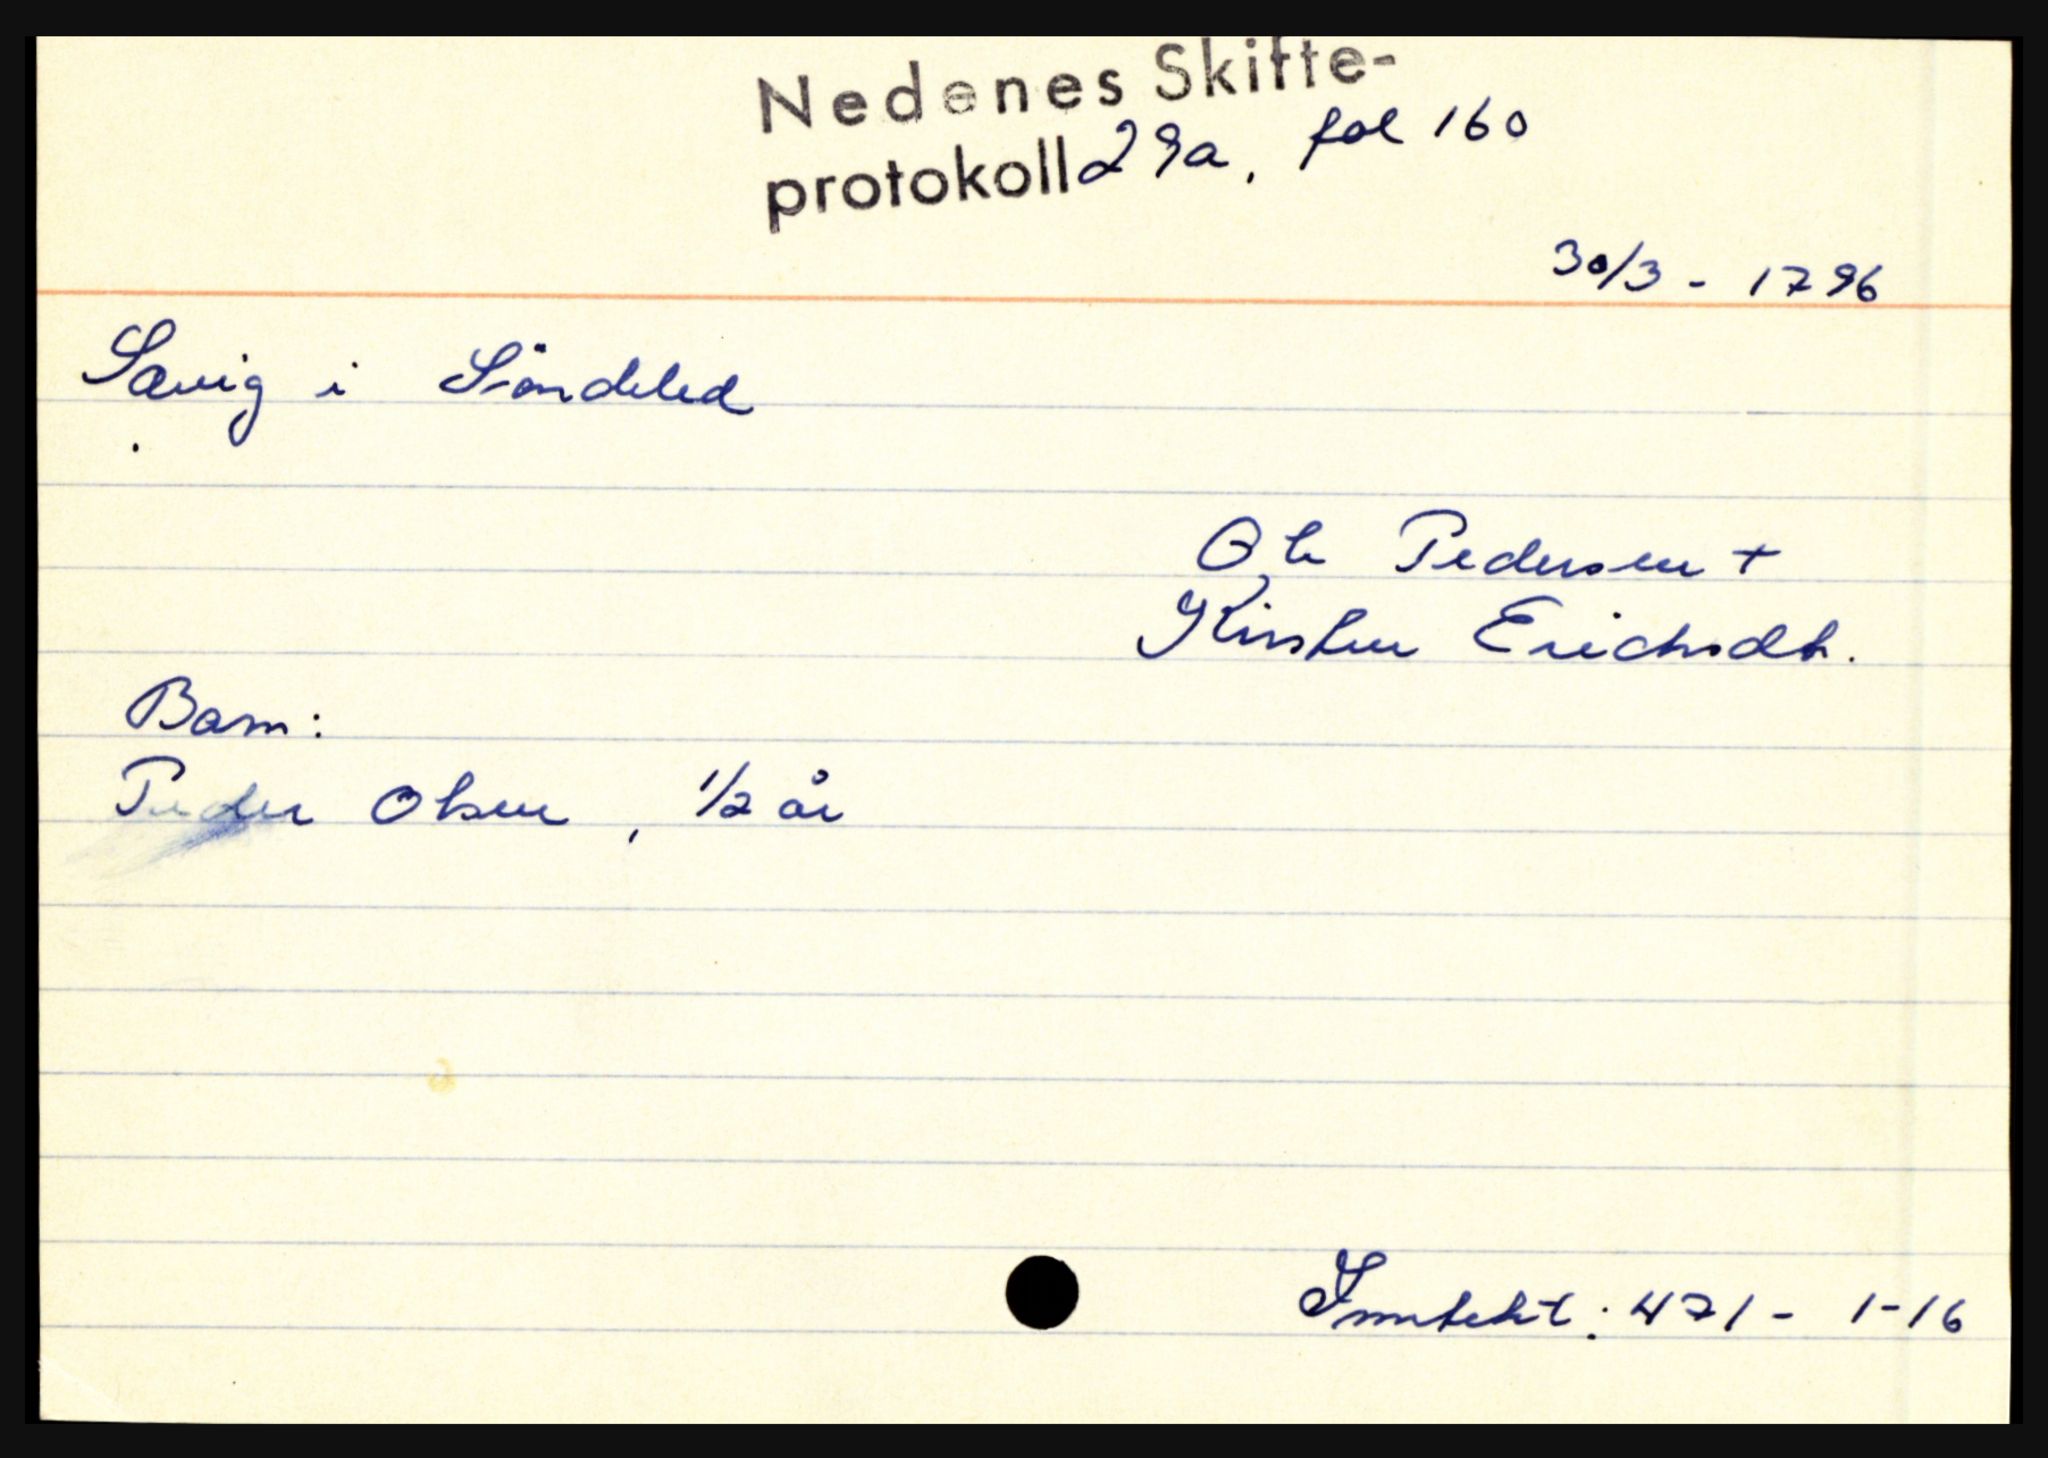 Nedenes Skifte-
protokoll 29a, fol 160
30/3 - 1796
Sævig i Söndeled
Ole Pedersen +
Kirsten Erichsdtr.
Barn:
Peder Olsen, 1/2 år
Inntekt: 471 - 1-16